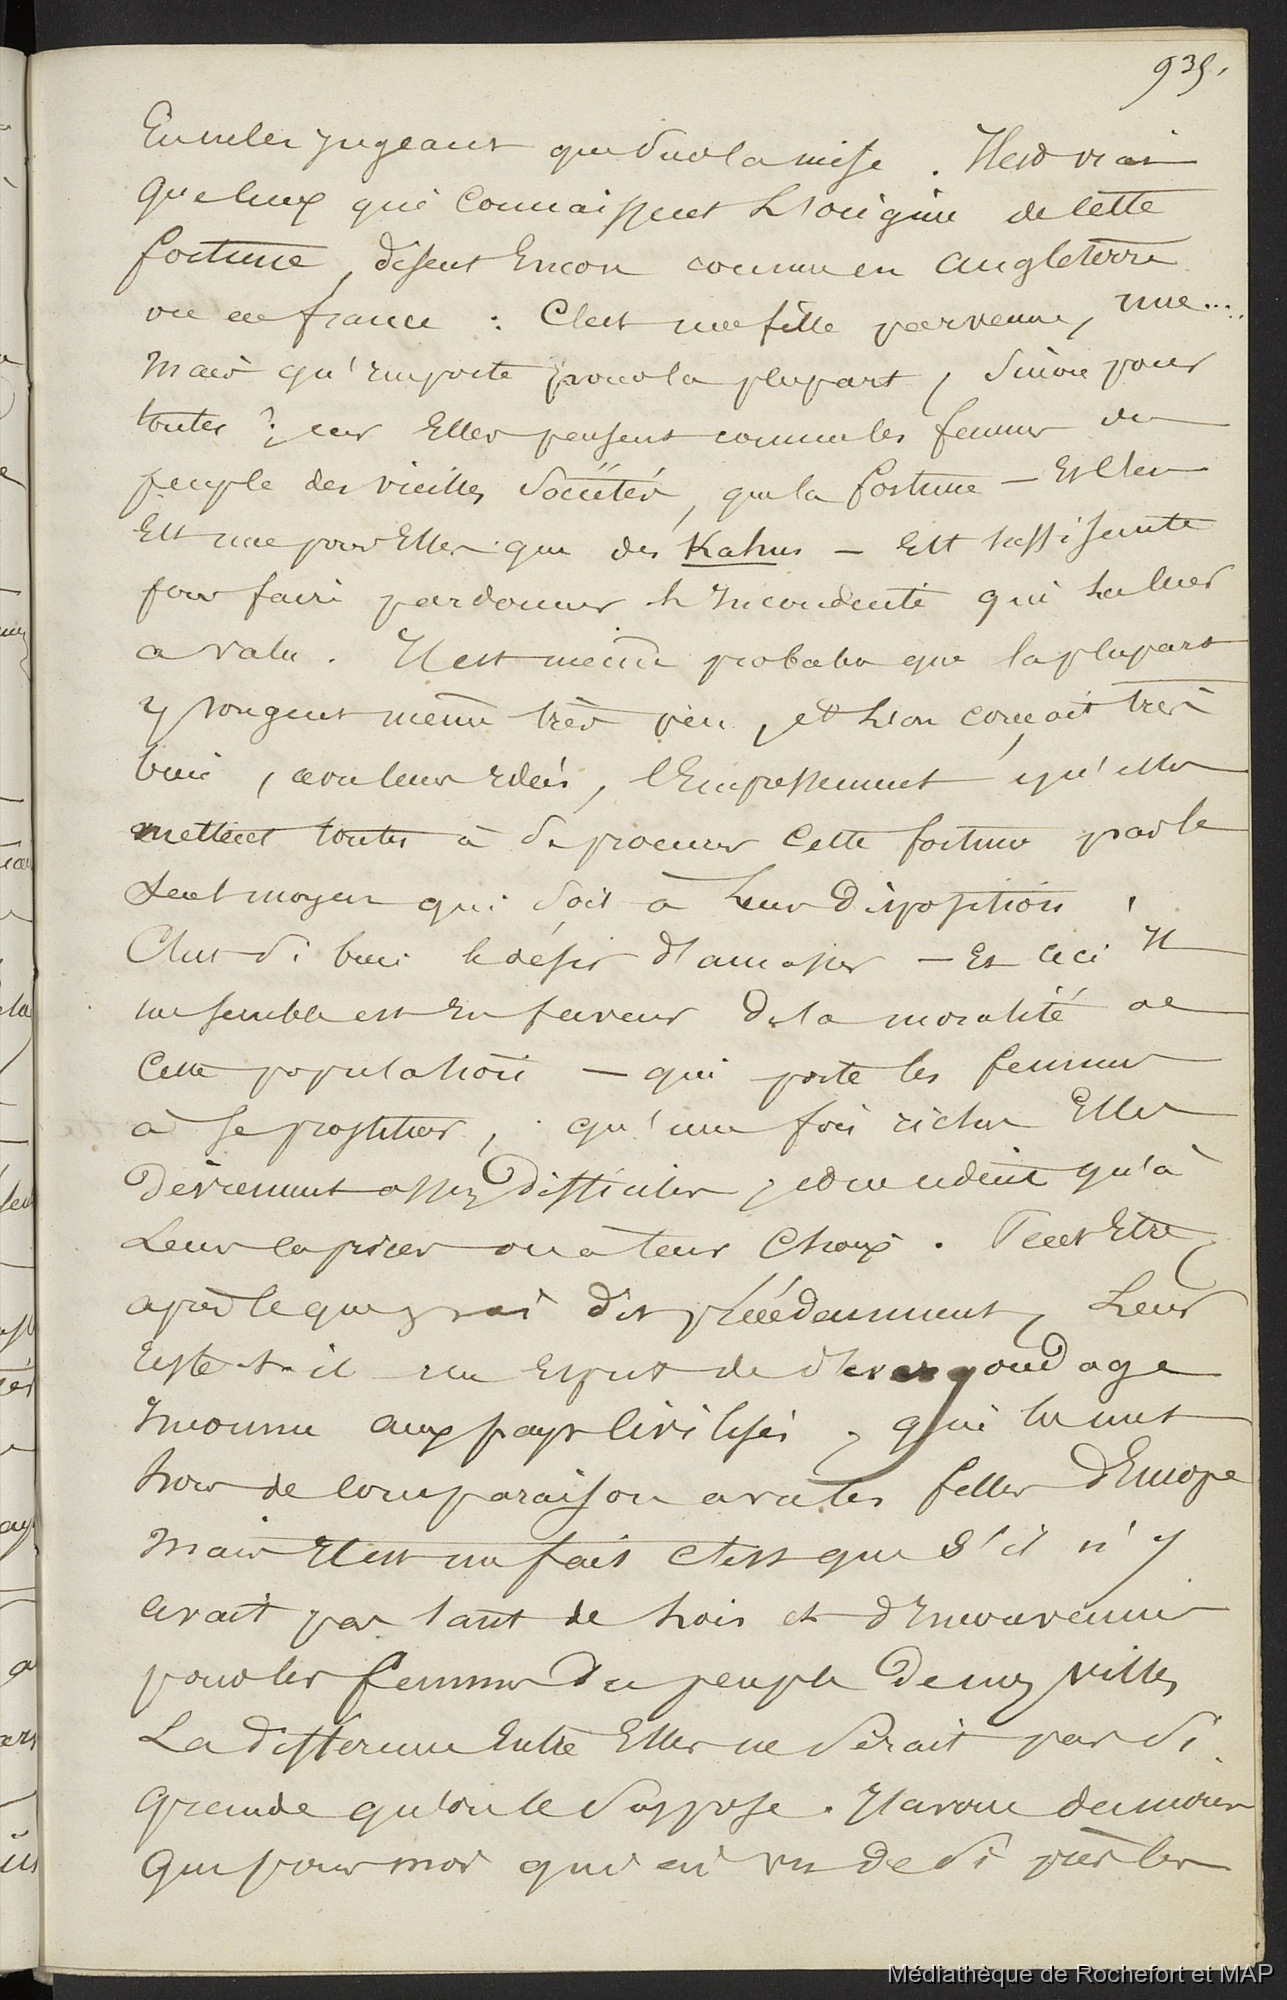 935.
En ne les jugeant que sur la mise. Il est vrai
que ceux qui connaissent l'origine de cette
fortune, disent encore comme en Angleterre
ou en france : C'est une fille parvenue, une....
Mais qu'importe pour la plupart, sinon pour
toutes ? car Elles pensent comme les femmes du
peuple des vieilles Sociétés, que la fortune – Et c'en
Est une pour Elles que des Kahus – Est suffisante
pour faire pardonner l'Inconduite qui la leur
a valu. Il est même probable que la plupart
y songent même très peu, et l'on conçoit très
bien, avec leurs idées, l'Empressement qu'elles
mettent toutes à se procurer cette fortune par le
seul moyen qui soit à leur Disposition,
C'est si bien le désir d'amasser – Et ceci Il
me semble est En faveur de la moralité de
Cette population – qui porte les femmes
à se prostituer, qu'une fois riches Elles
Deviennent assez Difficiles, et ne cèdent qu'à
Leurs caprices ou à leur Choix. Peut Etre,
après ce que j'ai dit précédemment, Leur
reste-t-il un Esprit de dévergondage
Inconnu aux pays Civilisés, qui les met
hors de comparaison avec les filles d'Europe
Mais Il est un fait c'est que s'il n'y
avait pas tant de lois et d'Inconvenients
pour les femmes du peuple De nos villes
La différence Entre Elles ne serait pas si
grande qu'on le Suppose. J'avoue du moins
Que pour moi qui ai vu de si près les
Médiathèque de Rochefort et MAP